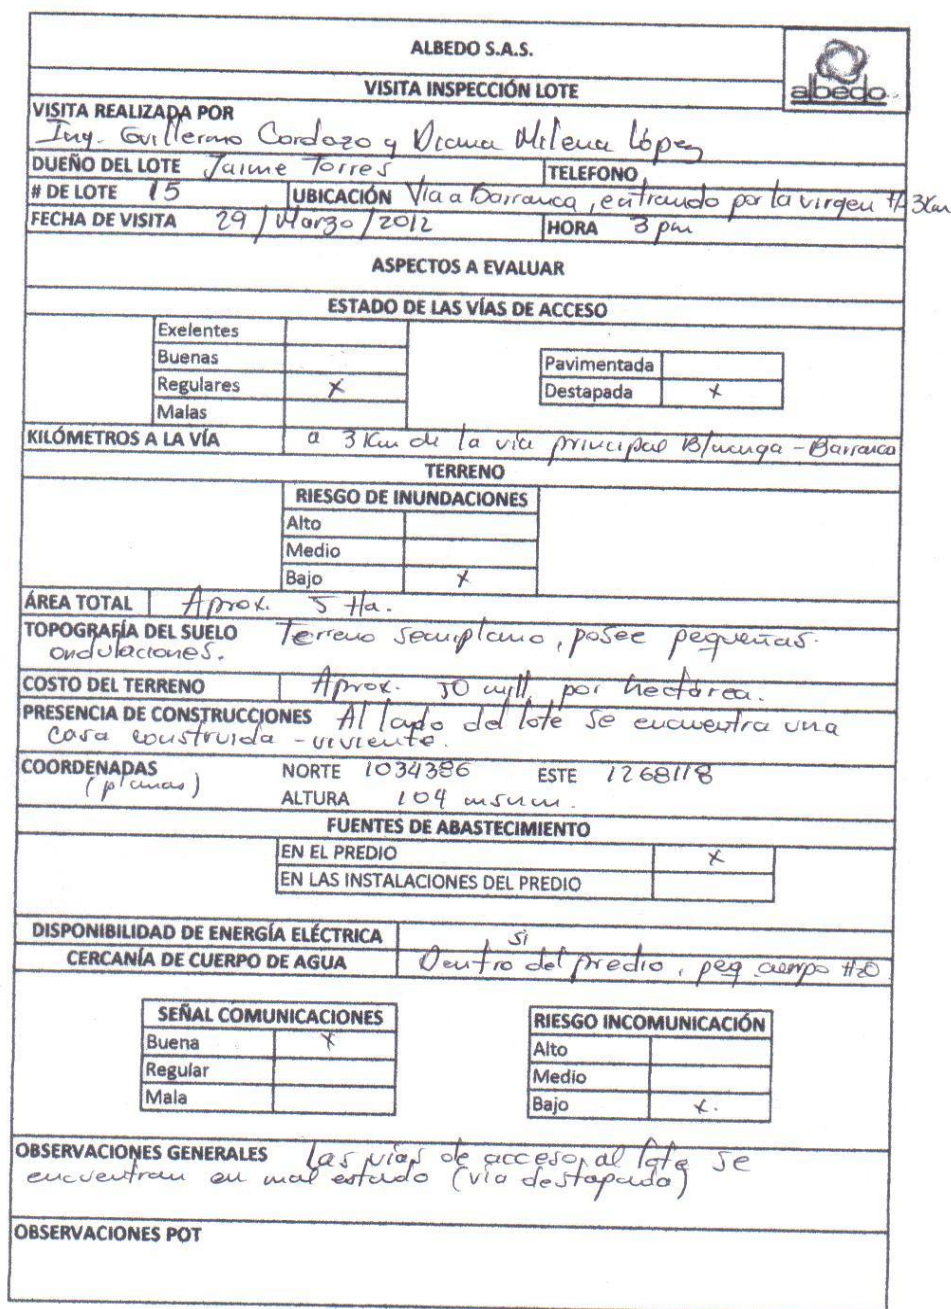 ALBEDO S.A.S.
albedo
VISITA INSPECCIÓN LOTE
VISITA REALIZADA POR
Ing. Guillermo Cordozo y Diana Milena López
DUEÑO DEL LOTE Jaime Torres TELEFONO
# DE LOTE 15 UBICACIÓN Via a Barranca, entrando por la virgen +/- 3Km
FECHA DE VISITA 29/Marzo/2012 HORA 3 pm
ASPECTOS A EVALUAR
ESTADO DE LAS VÍAS DE ACCESO
Exelentes
Buenas
Regulares X
Malas
Pavimentada
Destapada X
KILÓMETROS A LA VÍA a 3 Km de la via principal B/manga - Barranca
TERRENO
RIESGO DE INUNDACIONES
Alto
Medio
Bajo X
ÁREA TOTAL Aprox. 5 Ha.
TOPOGRAFÍA DEL SUELO Terreno semiplano, posee pequeñas
ondulaciones.
COSTO DEL TERRENO Aprox. 50 mill por hectárea.
PRESENCIA DE CONSTRUCCIONES Al lado del lote se encuentra una
casa construida - viviente.
COORDENADAS NORTE 1034386 ESTE 1268118
(planas) ALTURA 104 msnm.
FUENTES DE ABASTECIMIENTO
EN EL PREDIO X
EN LAS INSTALACIONES DEL PREDIO
DISPONIBILIDAD DE ENERGÍA ELÉCTRICA si
CERCANÍA DE CUERPO DE AGUA Dentro del predio, peq cuerpo H2O
SEÑAL COMUNICACIONES
Buena X
Regular
Mala
RIESGO INCOMUNICACIÓN
Alto
Medio
Bajo X.
OBSERVACIONES GENERALES las vias de acceso al lote se
encuentran en mal estado (via destapada)
OBSERVACIONES POT